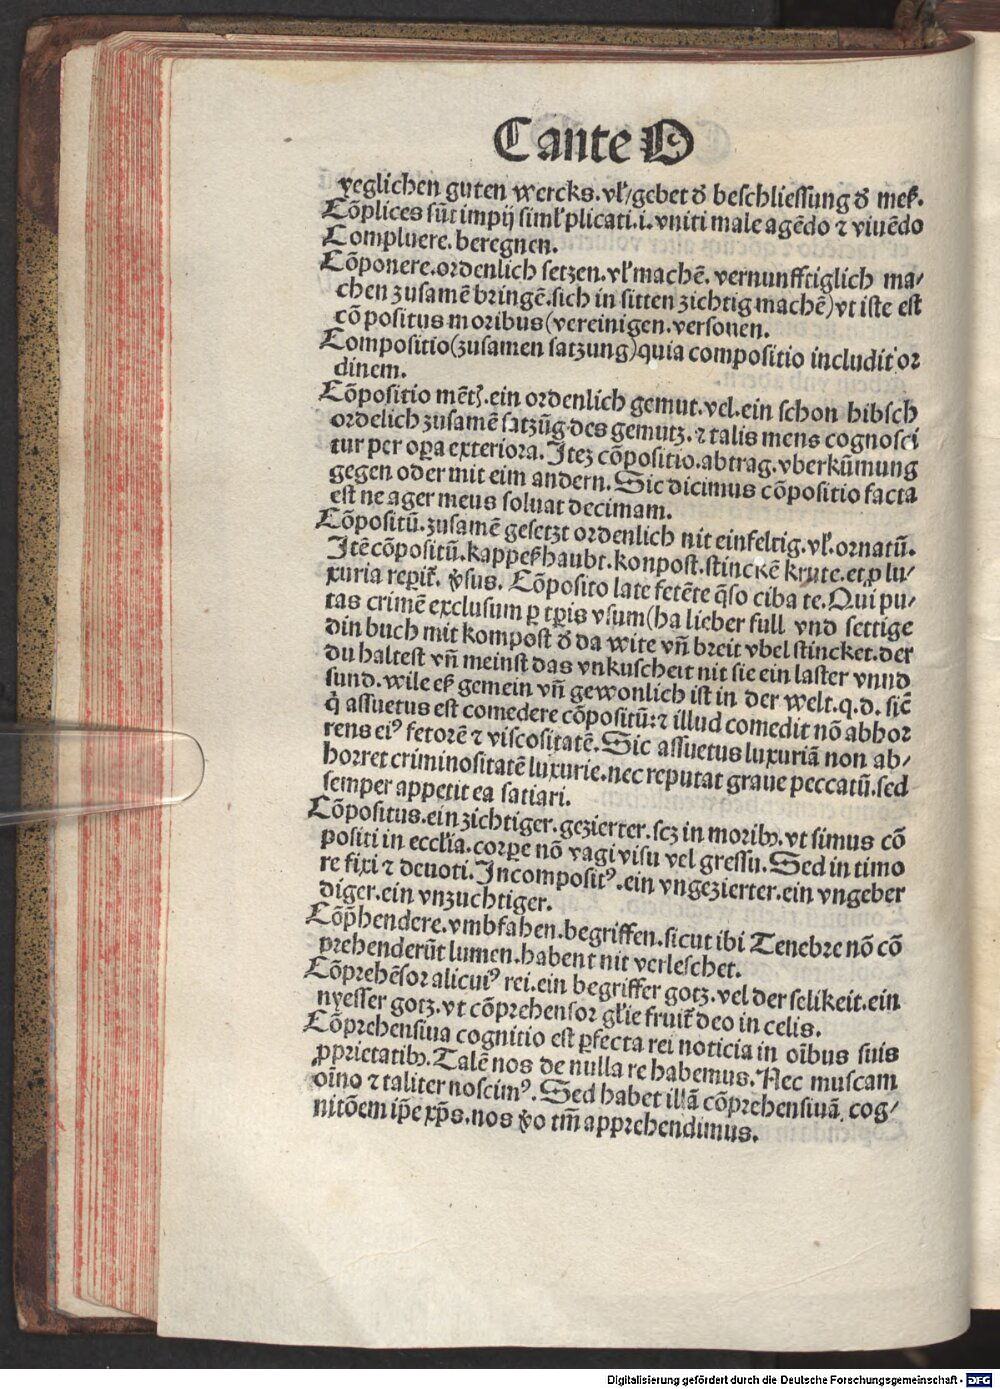 C ante O
yeglichen guten wercks. vl̕/gebet d̕ beschliessung d̕ mes̕.
Cōplices sūt impij siml̕ plicati. i. vniti male agēdo ⁊ viuēdo
Compluere. beregnen.
Cōponere. ordenlich setzen. vl̕ machē. vernunfftiglich ma⸗
chen zusamē bringē. sich in sitten zichtig machē) vt iste est
cōpositus moribus (vereinigen. versonen.
Compositio (zusamen satzung) quia compositio includit or
dinem.
Cōpositio mētꝭ. ein ordenlich gemut. vel. ein schon hibsch
ordelich zusamē satzūg des gemutz. ⁊ talis mens cognosci
tur per oꝑa exteriora. Itez cōpositio. abtrag. vberkūmung
gegen oder mit eim andern. Sic dicimus cōpositio facta
est ne ager meus soluat decimam.
Cōpositū. zusamē gesetzt ordenlich nit einfeltig. vl̕. ornatū.
Itē cōpositū. kappes̕haubt. konpost. stinckē krute. et. ꝓ lu⸗
xuria reꝑit̕. v̕sus. Cōposito late fetēte q̄so ciba te. Qui pu⸗
tas crimē exclusum ꝑ tꝑis vsum (ha lieber full vnd settige
din buch mit kompost d̕ da wite vn̄ breit vbel stincket. der
du haltest vn̄ meinst das vnkuscheit nit sie ein laster vnnd
sund. wile es̕ gemein vn̄ gewonlich ist in der welt. q. d. sic̄
q̇ assuetus est comedere cōpositū: ⁊ illud comedit nō abhor
rens eiꝰ fetorē ⁊ viscositatē. Sic assuetus luxuriā non ab⸗
horret criminositatē luxurie. nec reputat graue peccatū. sed
semper appetit ea satiari.
Cōpositus. ein zichtiger. gezierter. scz in moribꝰ. vt simus cō
positi in eccl̕ia. corꝑe nō vagi visu vel gressu. Sed in timo
re fixi ⁊ deuoti. Incompositꝰ. ein vngezierter. ein vngeber
diger. ein vnzuchtiger.
Cōp̄hendere. vmbfahen. begriffen. sicut ibi Tenebre nō cō
prehenderūt lumen. habent nit verleschet.
Cōprehēsor alicuiꝰ rei. ein begriffer gotz. vel der selikeit. ein
nyesser gotz. vt cōprehensor gl̕ie fruit̕ deo in celis.
Cōprehensiua cognitio est ꝑfecta rei noticia in oībus suis
ꝓprietatibꝰ. Talē nos de nulla re habemus. Nec muscam
oīno ⁊ taliter noscimꝰ. Sed habet illā cōprehensiuā. cog⸗
nitōem ip̄e xp̄s. nos v̕o tm̄ apprehendimus.
Digitalisierung gefördert durch die Deutsche Forschungsgemeinschaft - DFG